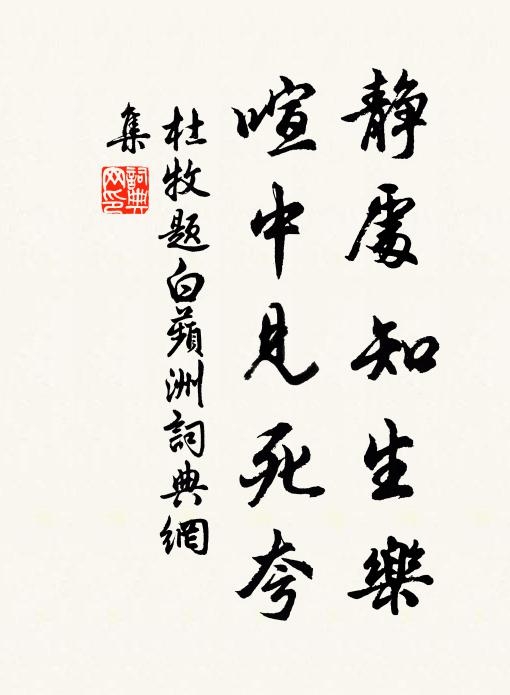 静處知生樂
喧中見死夸
杜牧題白蘋洲詞典網
集
詞典
网印